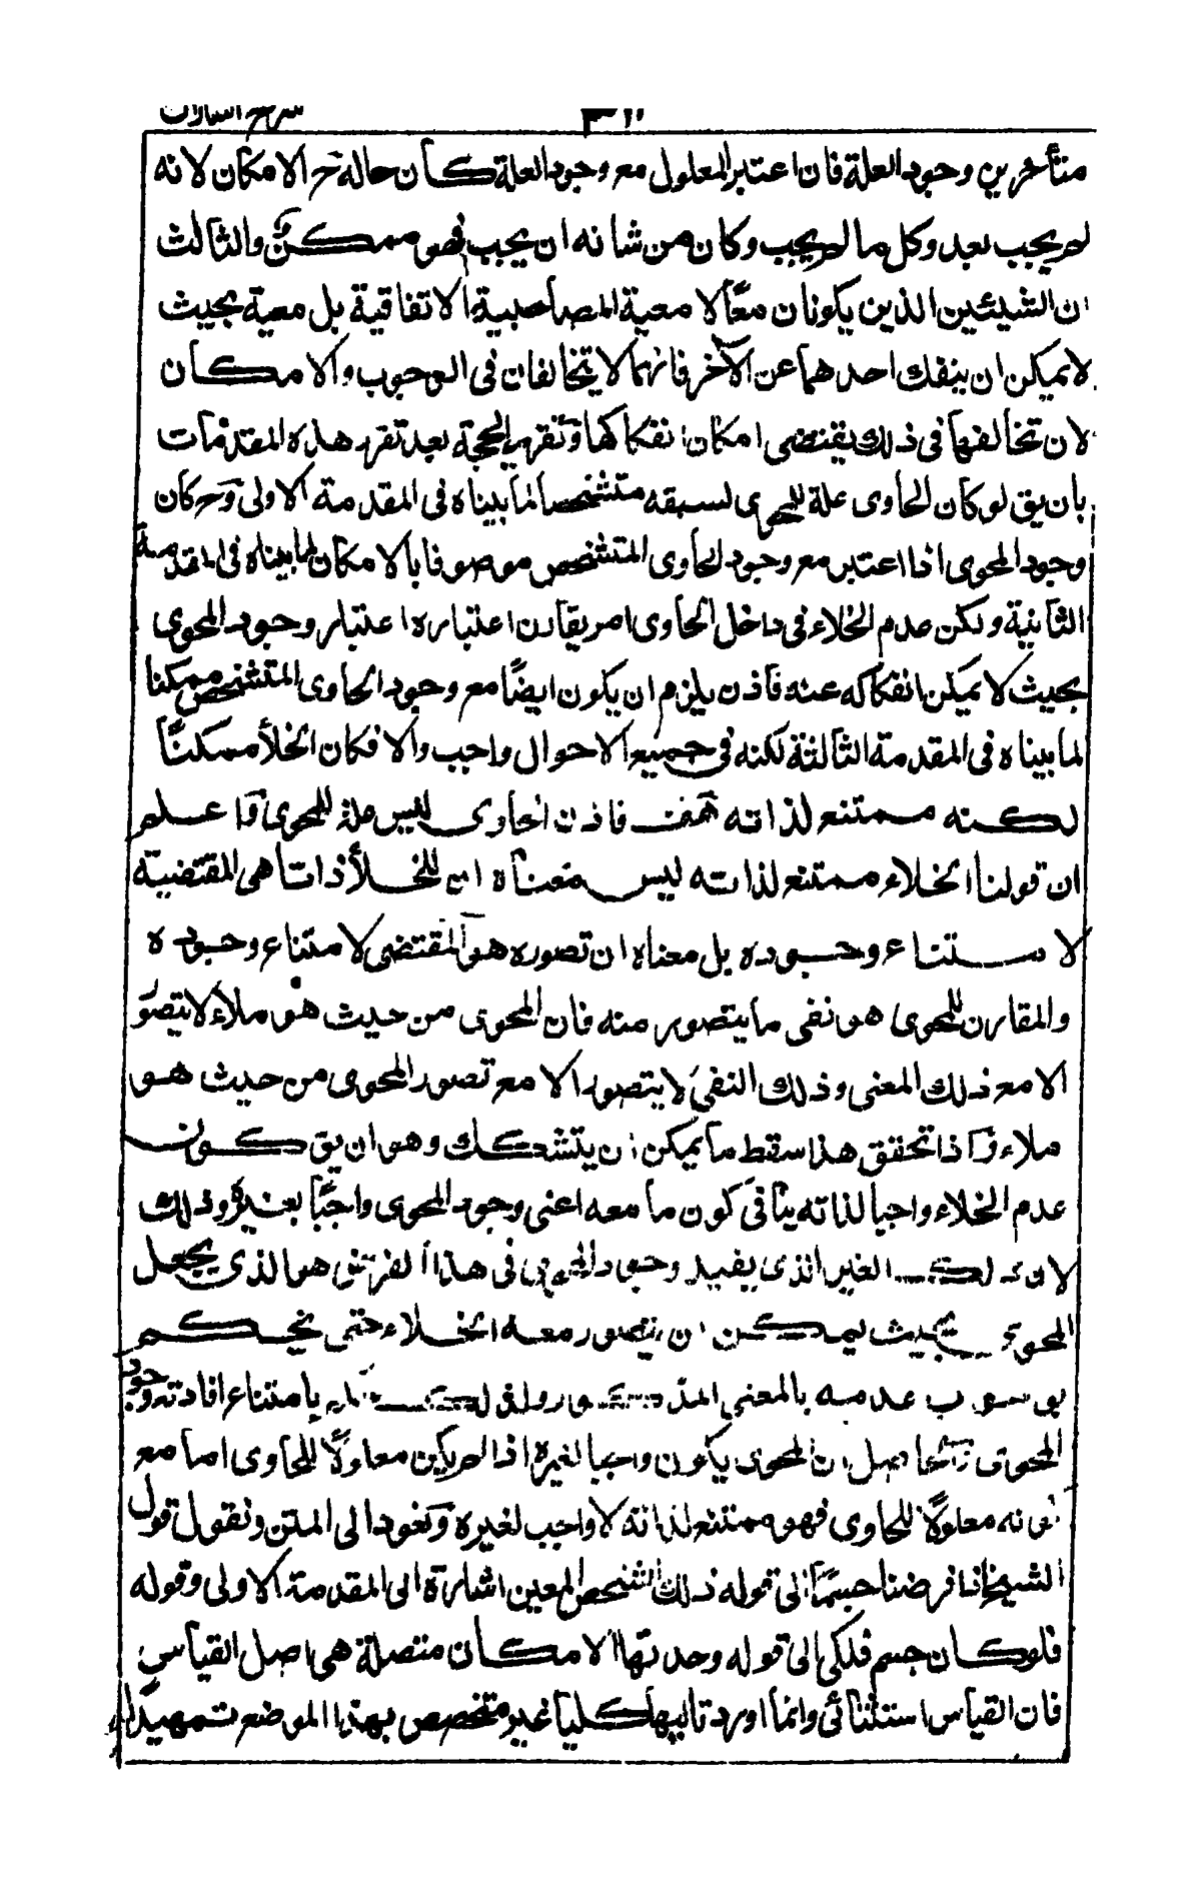 شرح اشارات
متأخرين وجود العلة فان اعتبر المعلول مع وجود العلة كان حاله ح الامكان لانه
لم يجب بعد وكل ما لم يجب وكان من شانه ان يجب فهو ممكن والثالث
ان الشيئين الذين يكونان معًا لا معية المصاحبة الاتفاقية بل معية بحيث
لا يمكن ان ينفك احدهما عن الآخر فانهما لا يتخالفان فى الوجوب والامكان
لان تخالفهما فى ذلك يقتضى امكان انفكاكهما وتقرير الحجة بعد تقرر هذه المقدمات
بان يق لو كان الحاوى علة للمحوى لسبقه متشخصا لما بيناه فى المقدمة الاولى وح كان
وجود المحوى اذا اعتبر مع وجود الحاوى المتشخص موصوفا بالامكان لما بيناه فى المقدمة
الثانية ولكن عدم الخلاء فى داخل الحاوى امر يقارن اعتباره اعتبار وجود المحوى
بحيث لا يمكن انفكاكه عنه فاذن يلزم ان يكون ايضًا مع وجود الحاوى المتشخص ممكنا
لما بيناه فى المقدمة الثالثة لكنه فى جميع الاحوال واجب والا فكان الخلأ ممكنًا
لكنه ممتنع لذاته هف فاذن الحاوى ليس علة للمحوى واعلم
ان قولنا الخلاء ممتنع لذاته ليس معناه ان للخلأ ذاتا هى المقتضية
لامتناع وجوده بل معناه ان تصوره هو المقتضى لامتناع وجوده
والمقارن للمحوى هو نفى ما يتصور منه فان المحوى من حيث هو ملأ لا يتصور
الا مع ذلك المعنى وذلك النفى لا يتصور الا مع تصور المحوى من حيث هو
ملاء واذا تحقق هذا سقط ما يمكن ان يتشكك وهو ان يق كون
عدم الخلاء واجبا لذاته ينافى كون ما معه اعنى وجود المحوى واجبًا بغيره وذلك
لان ذلك الغير الذى يفيد وجود المحوى فى هذا الفرض هو الذى يجعل
المحوى بحيث يمكن ان يتصور معه الخلاء حتى يحكم
بوجوب عدمه بالمعنى المذكور ولذلك بامتناع افادته وجود
المحوى ان المحوى يكون واجبا لغيره اذا لم يكن معلولًا للحاوى اما مع
كونه معلولًا للحاوى فهو ممتنع لذاته لا واجب لغيره ونعود الى المتن ونقول قول
الشيخ اذا فرضنا جسمًا الى قوله ذلك الشخص المعين اشارة الى المقدمة الاولى وقوله
فلو كان جسم فلكى الى قوله وحدتها الامكان متصلة هى اصل القياس
فان القياس استثنائى وانما اورد تاليها كليا غير متخصص بهذا الموضع تمهيدًا